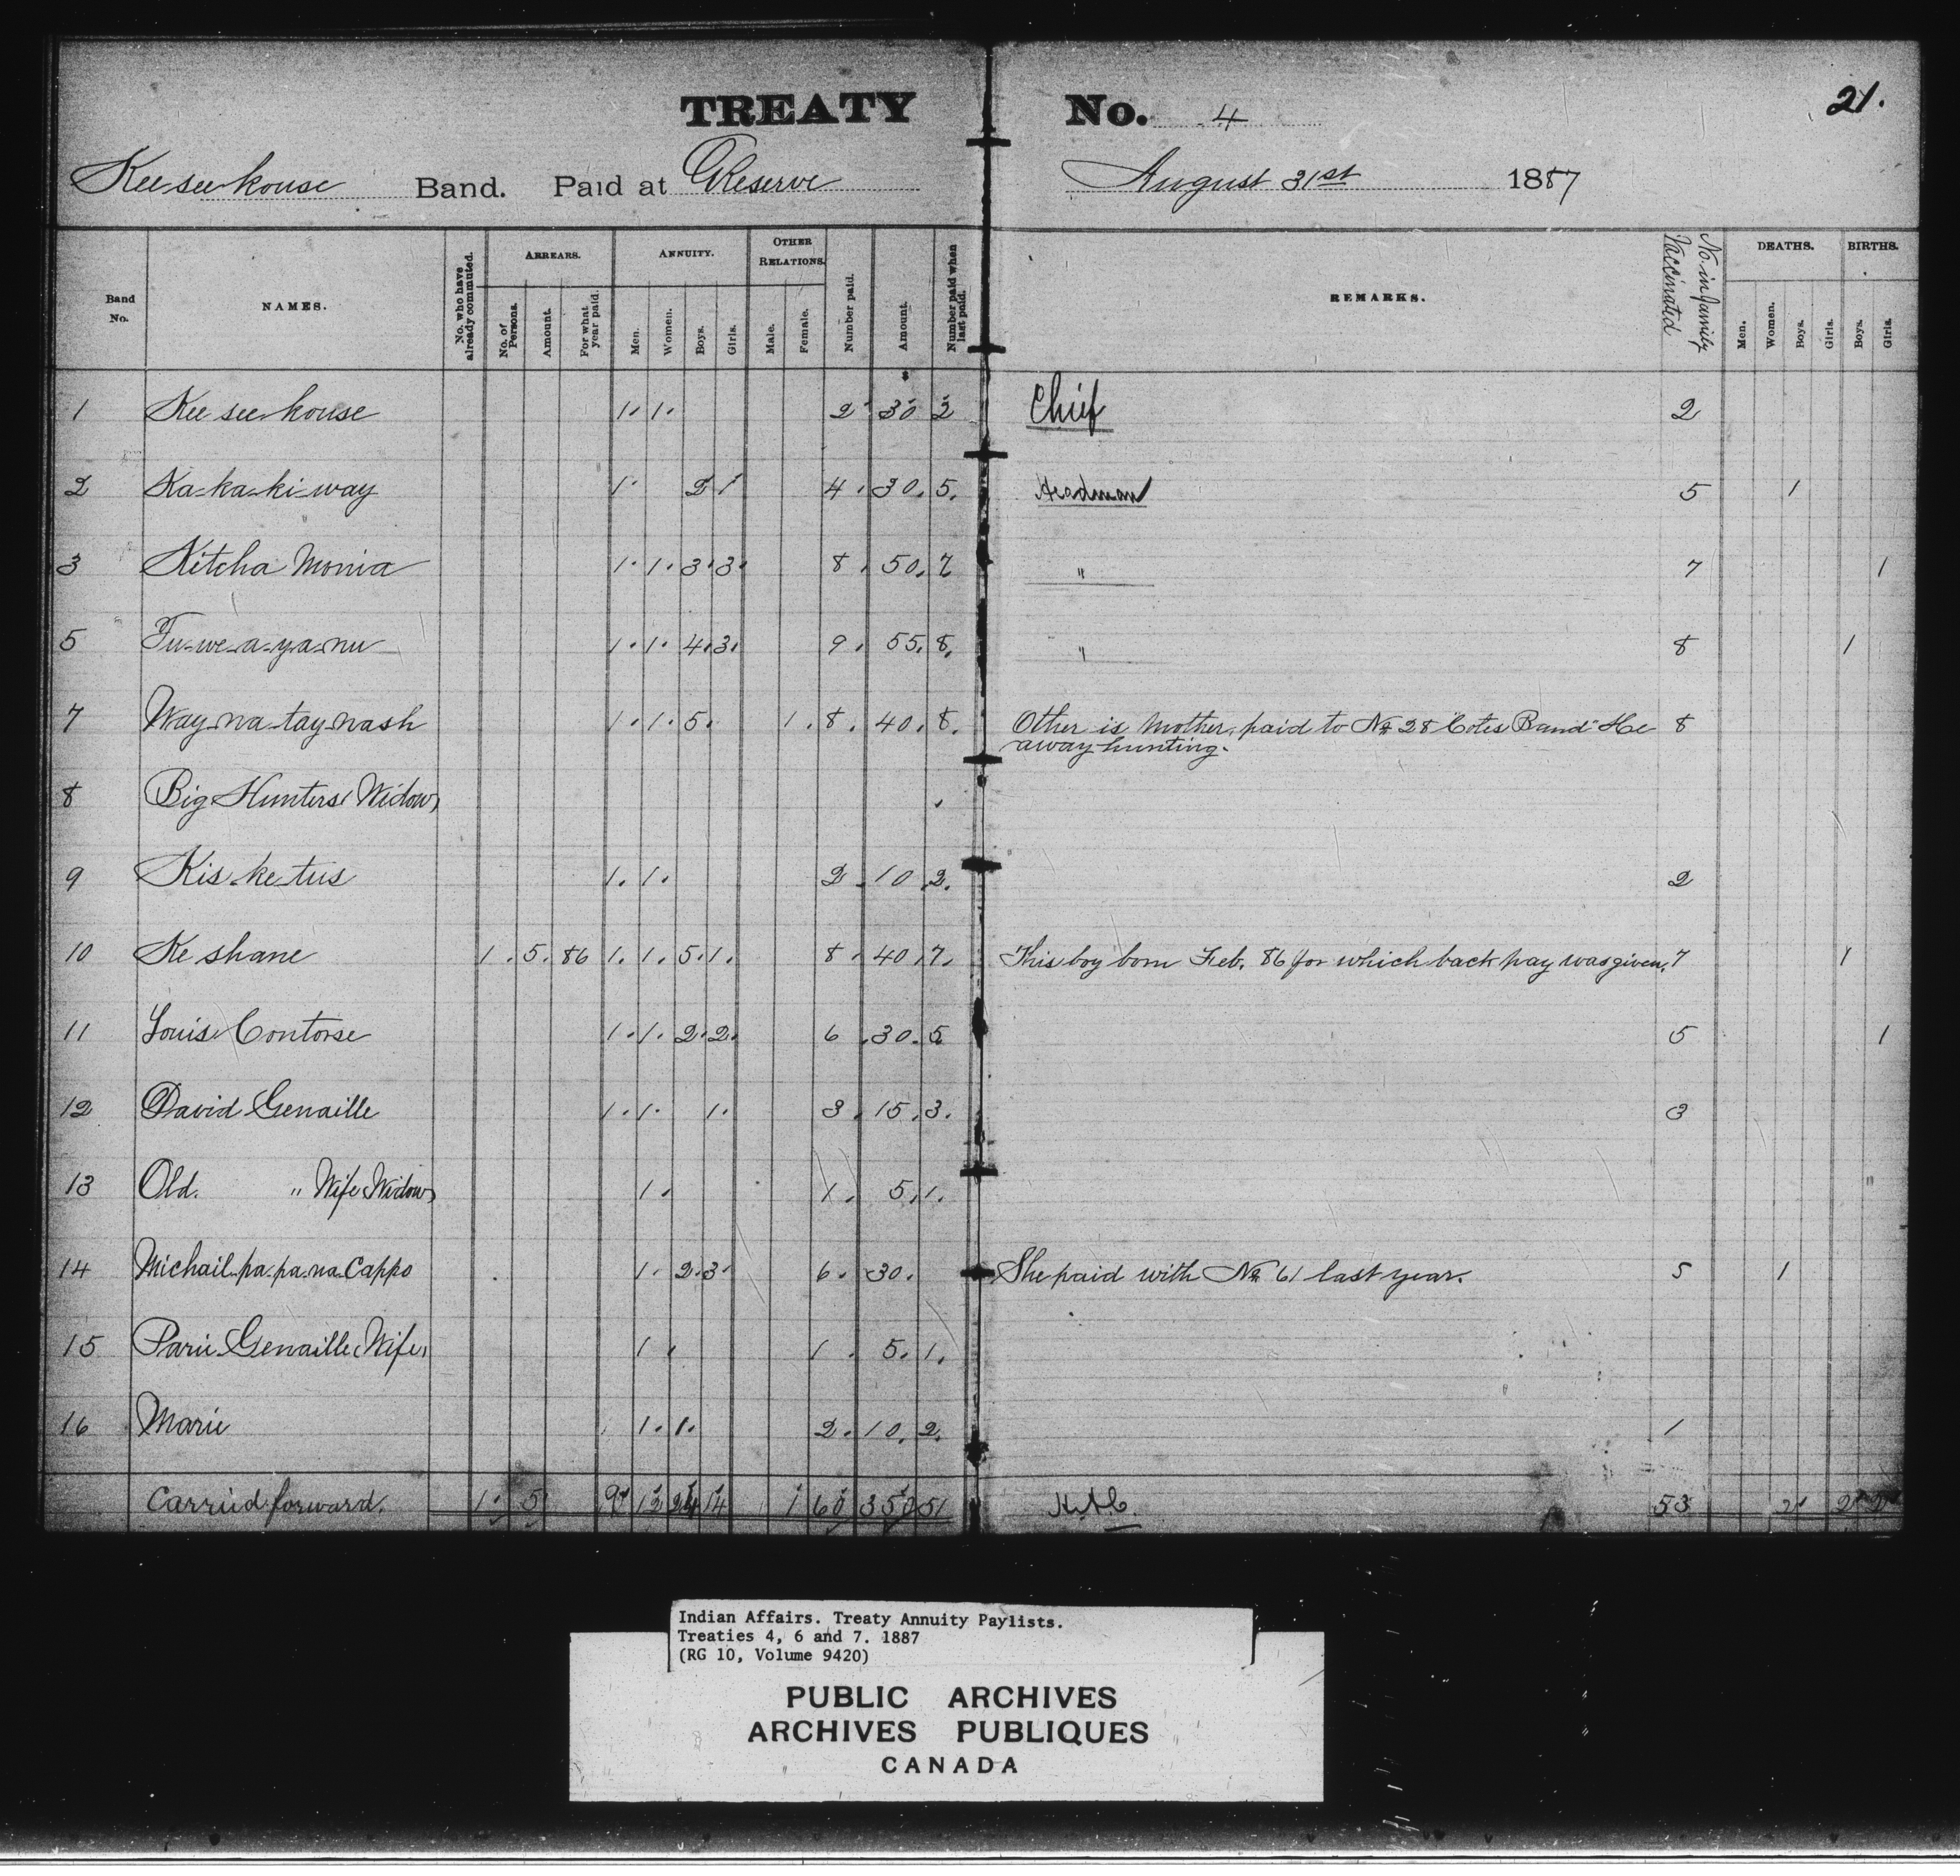 TREATY No. 4
21.
Keeseekouse Band. Paid at Reserve August 31st 1887
Band No. NAMES. No. who have already commuted. ARREARS. No. of Persons. Amount. For what year paid. ANNUITY. Men. Women. Boys. Girls. OTHER RELATIONS. Male. Female. Number paid. Amount. Number paid when last paid. REMARKS. Vaccinated No. in family DEATHS. Men. Women. Boys. Girls. BIRTHS. Boys. Girls.
$
1 Kee see kouse 1. 1. 2 30 2 Chief 2
2 Ka-ka-ki-way 1. 2 1 4. 30. 5. Headman 5 1
3 Kitcha Monia 1. 1. 3. 3. 8. 50. 7 " 7 1
5 Tu-we-a-ya-nu 1. 1. 4. 3. 9. 55. 8. " 8 1
7 Way-na-tay-nash 1. 1. 5. 1. 8. 40. 8. Other is Mother, paid to No 28 "Cotes Band" He 8
away hunting.
8 Big Hunters (Widow)
9 Kis-ke-tus 1. 1. 2. 10. 2. 2
10 Ke shane 1. 5. 86 1. 1. 5. 1. 8. 40. 7. This boy born Feb. 86 for which back pay was given. 7 1
11 Louis Contorse 1. 1. 2. 2. 6. 30. 5 5 1
12 David Genaille 1. 1. 1. 3. 15. 3. 3
13 Old. " Wife (Widow) 1. 1. 5. 1.
14 Michail-pa-pa-na-Cappo 1. 2. 3. 6. 30. She paid with No 61 last year. 5 1
15 Parie Genaille (Wife) 1. 1. 5. 1.
16 Marie 1. 1. 2. 10. 2. 1
Carried forward. 1. 5. 9 12 24 14 1 60 350 51 53 2 2 2
Indian Affairs. Treaty Annuity Paylists.
Treaties 4, 6 and 7. 1887
(RG 10, Volume 9420)
PUBLIC ARCHIVES
ARCHIVES PUBLIQUES
CANADA